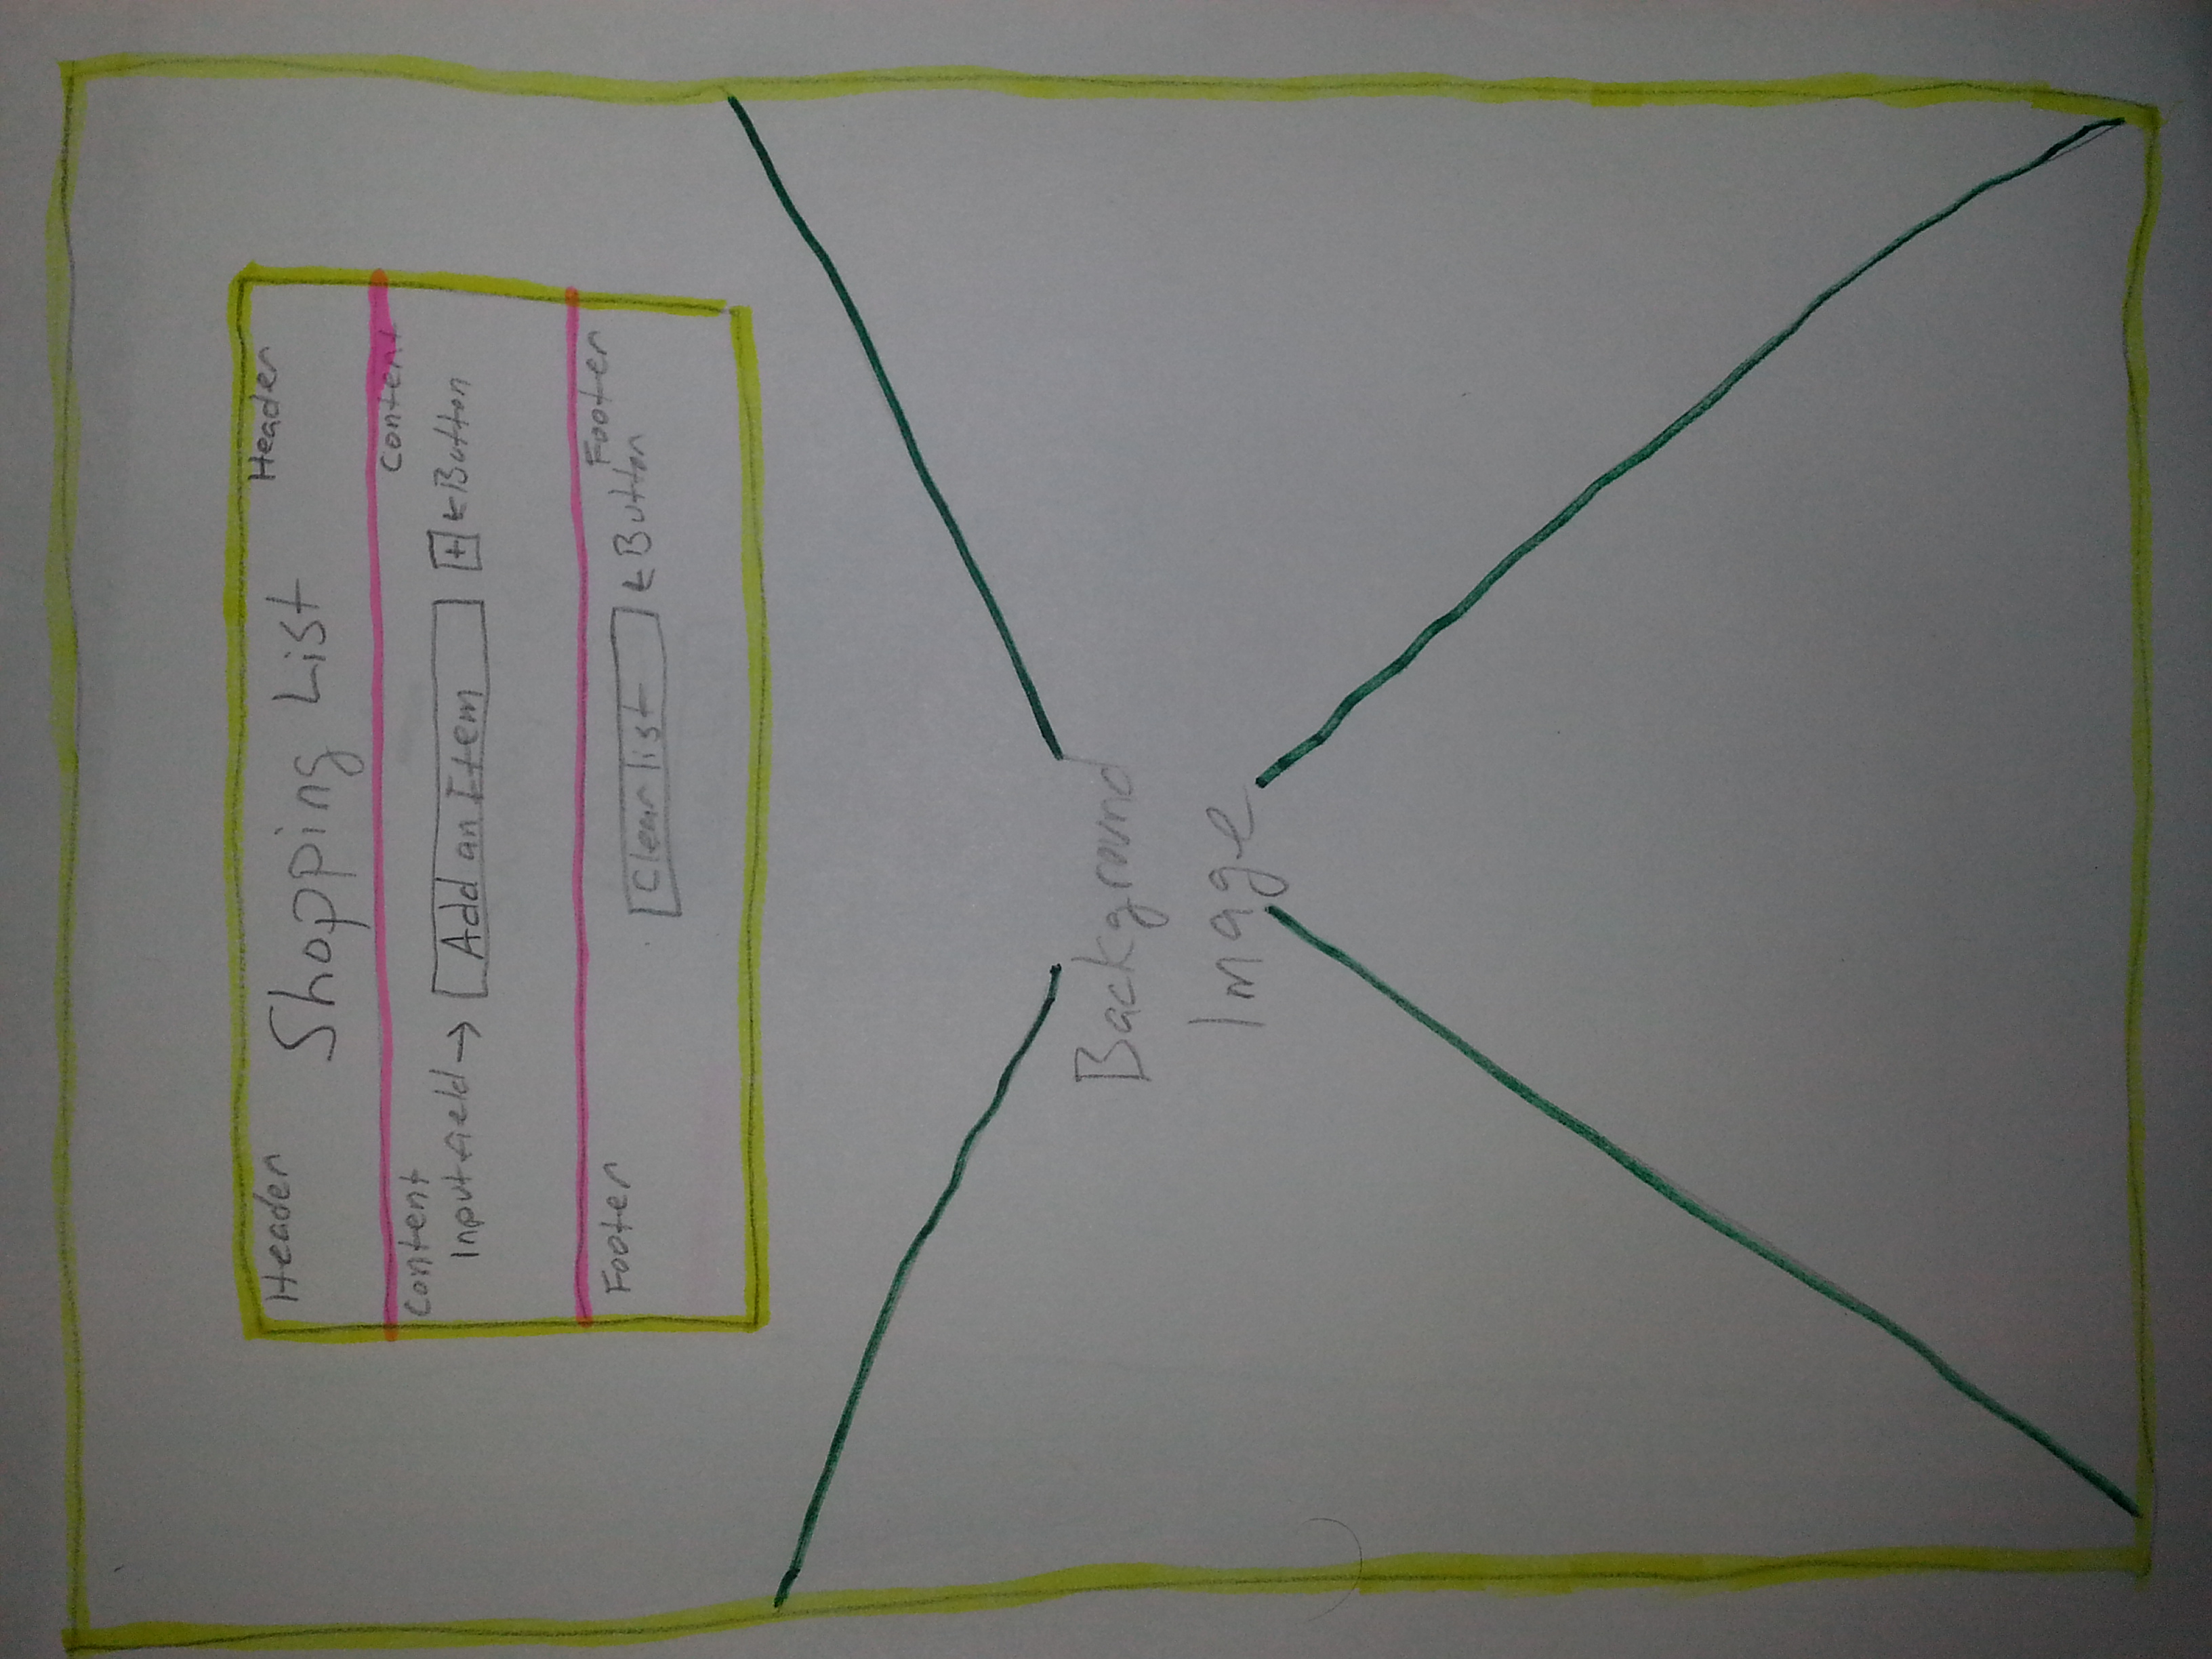 Header Shopping List Header
Content Content
Input field → Add an Item + ← Button
Footer Footer
Clear list ← Button
Background
Image